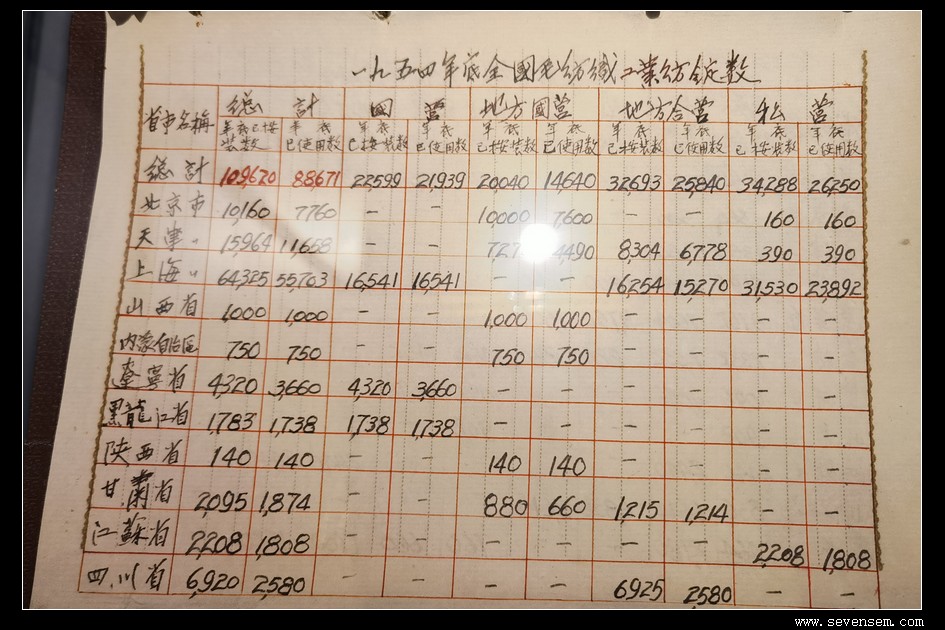 一九五四年底全國毛纺織工業纺錠数
省市名稱 總計 國營 地方國营 地方合营 私營
年底已按装数 年底已使用数 年底已按装数 年底已使用数 年底已按装数 年底已使用数 年底已按装数 年底已使用数 年底已按装数 年底已使用数
總計 109,620 88671 22,599 21,939 20,040 14640 32693 25,840 34,288 26,250
北京市 10,160 7760 — — 10,000 7,600 — — 160 160
天津〃 15,964 11,658 — — 4,490 8,304 6,778 390 390
上海〃 64,325 55,703 16,541 16,541 — — 16,254 15,270 31,530 23,892
山西省 1,000 1,000 — — 1,000 1,000 — — — —
内蒙自治区 750 750 — — 750 750 — — — —
遼寧省 4,320 3,660 4,320 3,660 — — — — — —
黑龍江省 1,783 1,738 1738 1,738 — — — — — —
陕西省 140 140 — — 140 140 — — — —
甘肅省 2,095 1,874 — — 880 660 1,215 1,214 — —
江蘇省 2,208 1,808 — — — — — — 2,208 1,808
四川省 6,920 2,580 — — — — 6,925 2,580 — —
www.sevensem.com